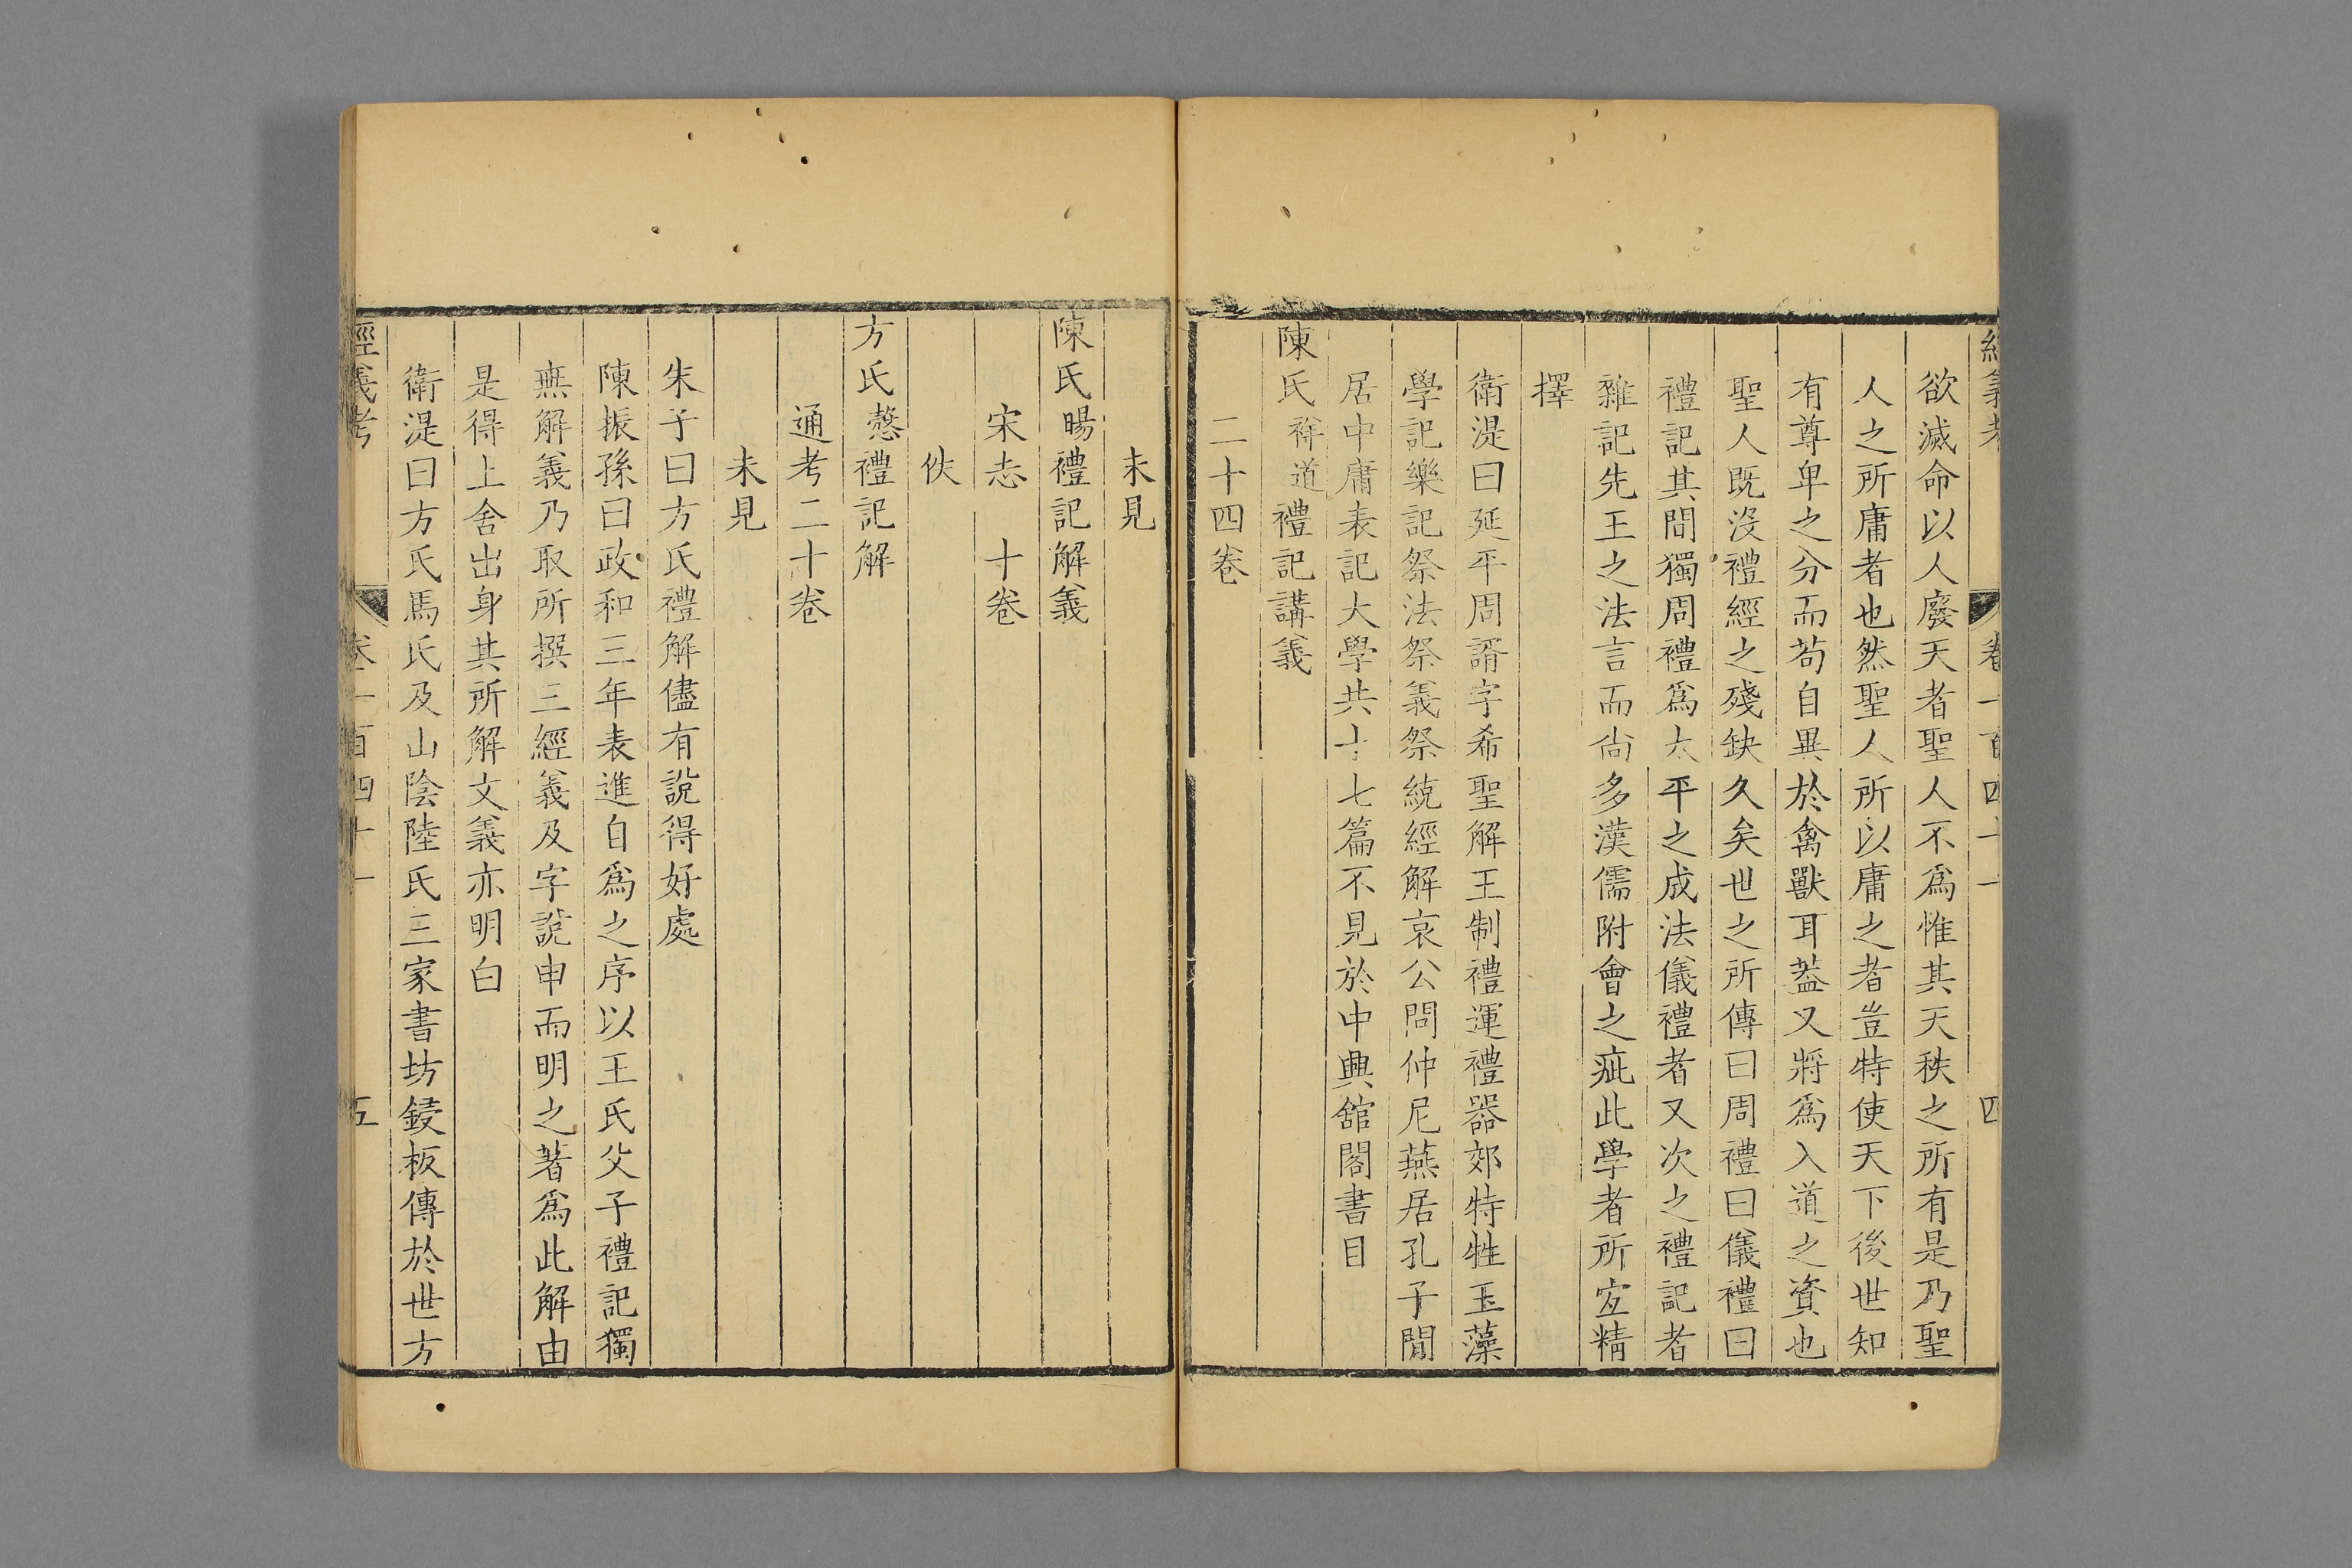 經義考 卷一百四十一 四
欲滅命以人廢天者聖人不爲惟其天秩之所有是乃聖
人之所庸者也然聖人所以庸之者豈特使天下後世知
有尊卑之分而苟自異於禽獸耳葢又將爲入道之資也
聖人既沒禮經之殘缺久矣世之所傳曰周禮曰儀禮曰
禮記其間獨周禮爲太平之成法儀禮者又次之禮記者
雜記先王之法言而尙多漢儒附會之疵此學者所宜精
擇
衛湜曰延平周諝字希聖解王制禮運禮器郊特牲玉藻
學記樂記祭法祭義祭統經解哀公問仲尼燕居孔子閒
居中庸表記大學共十七篇不見於中興舘閣書目
陳氏祥道禮記講義
二十四卷
未見
陳氏暘禮記解義
宋志 十卷
佚
方氏慤禮記解
通考二十卷
未見
朱子曰方氏禮解儘有說得好處
陳振孫曰政和三年表進自爲之序以王氏父子禮記獨
無解義乃取所撰三經義及字說申而明之著爲此解由
是得上舍出身其所解文義亦明白
衛湜曰方氏馬氏及山陰陸氏三家書坊鋟板傳於世方
經義考 卷一百四十一 五